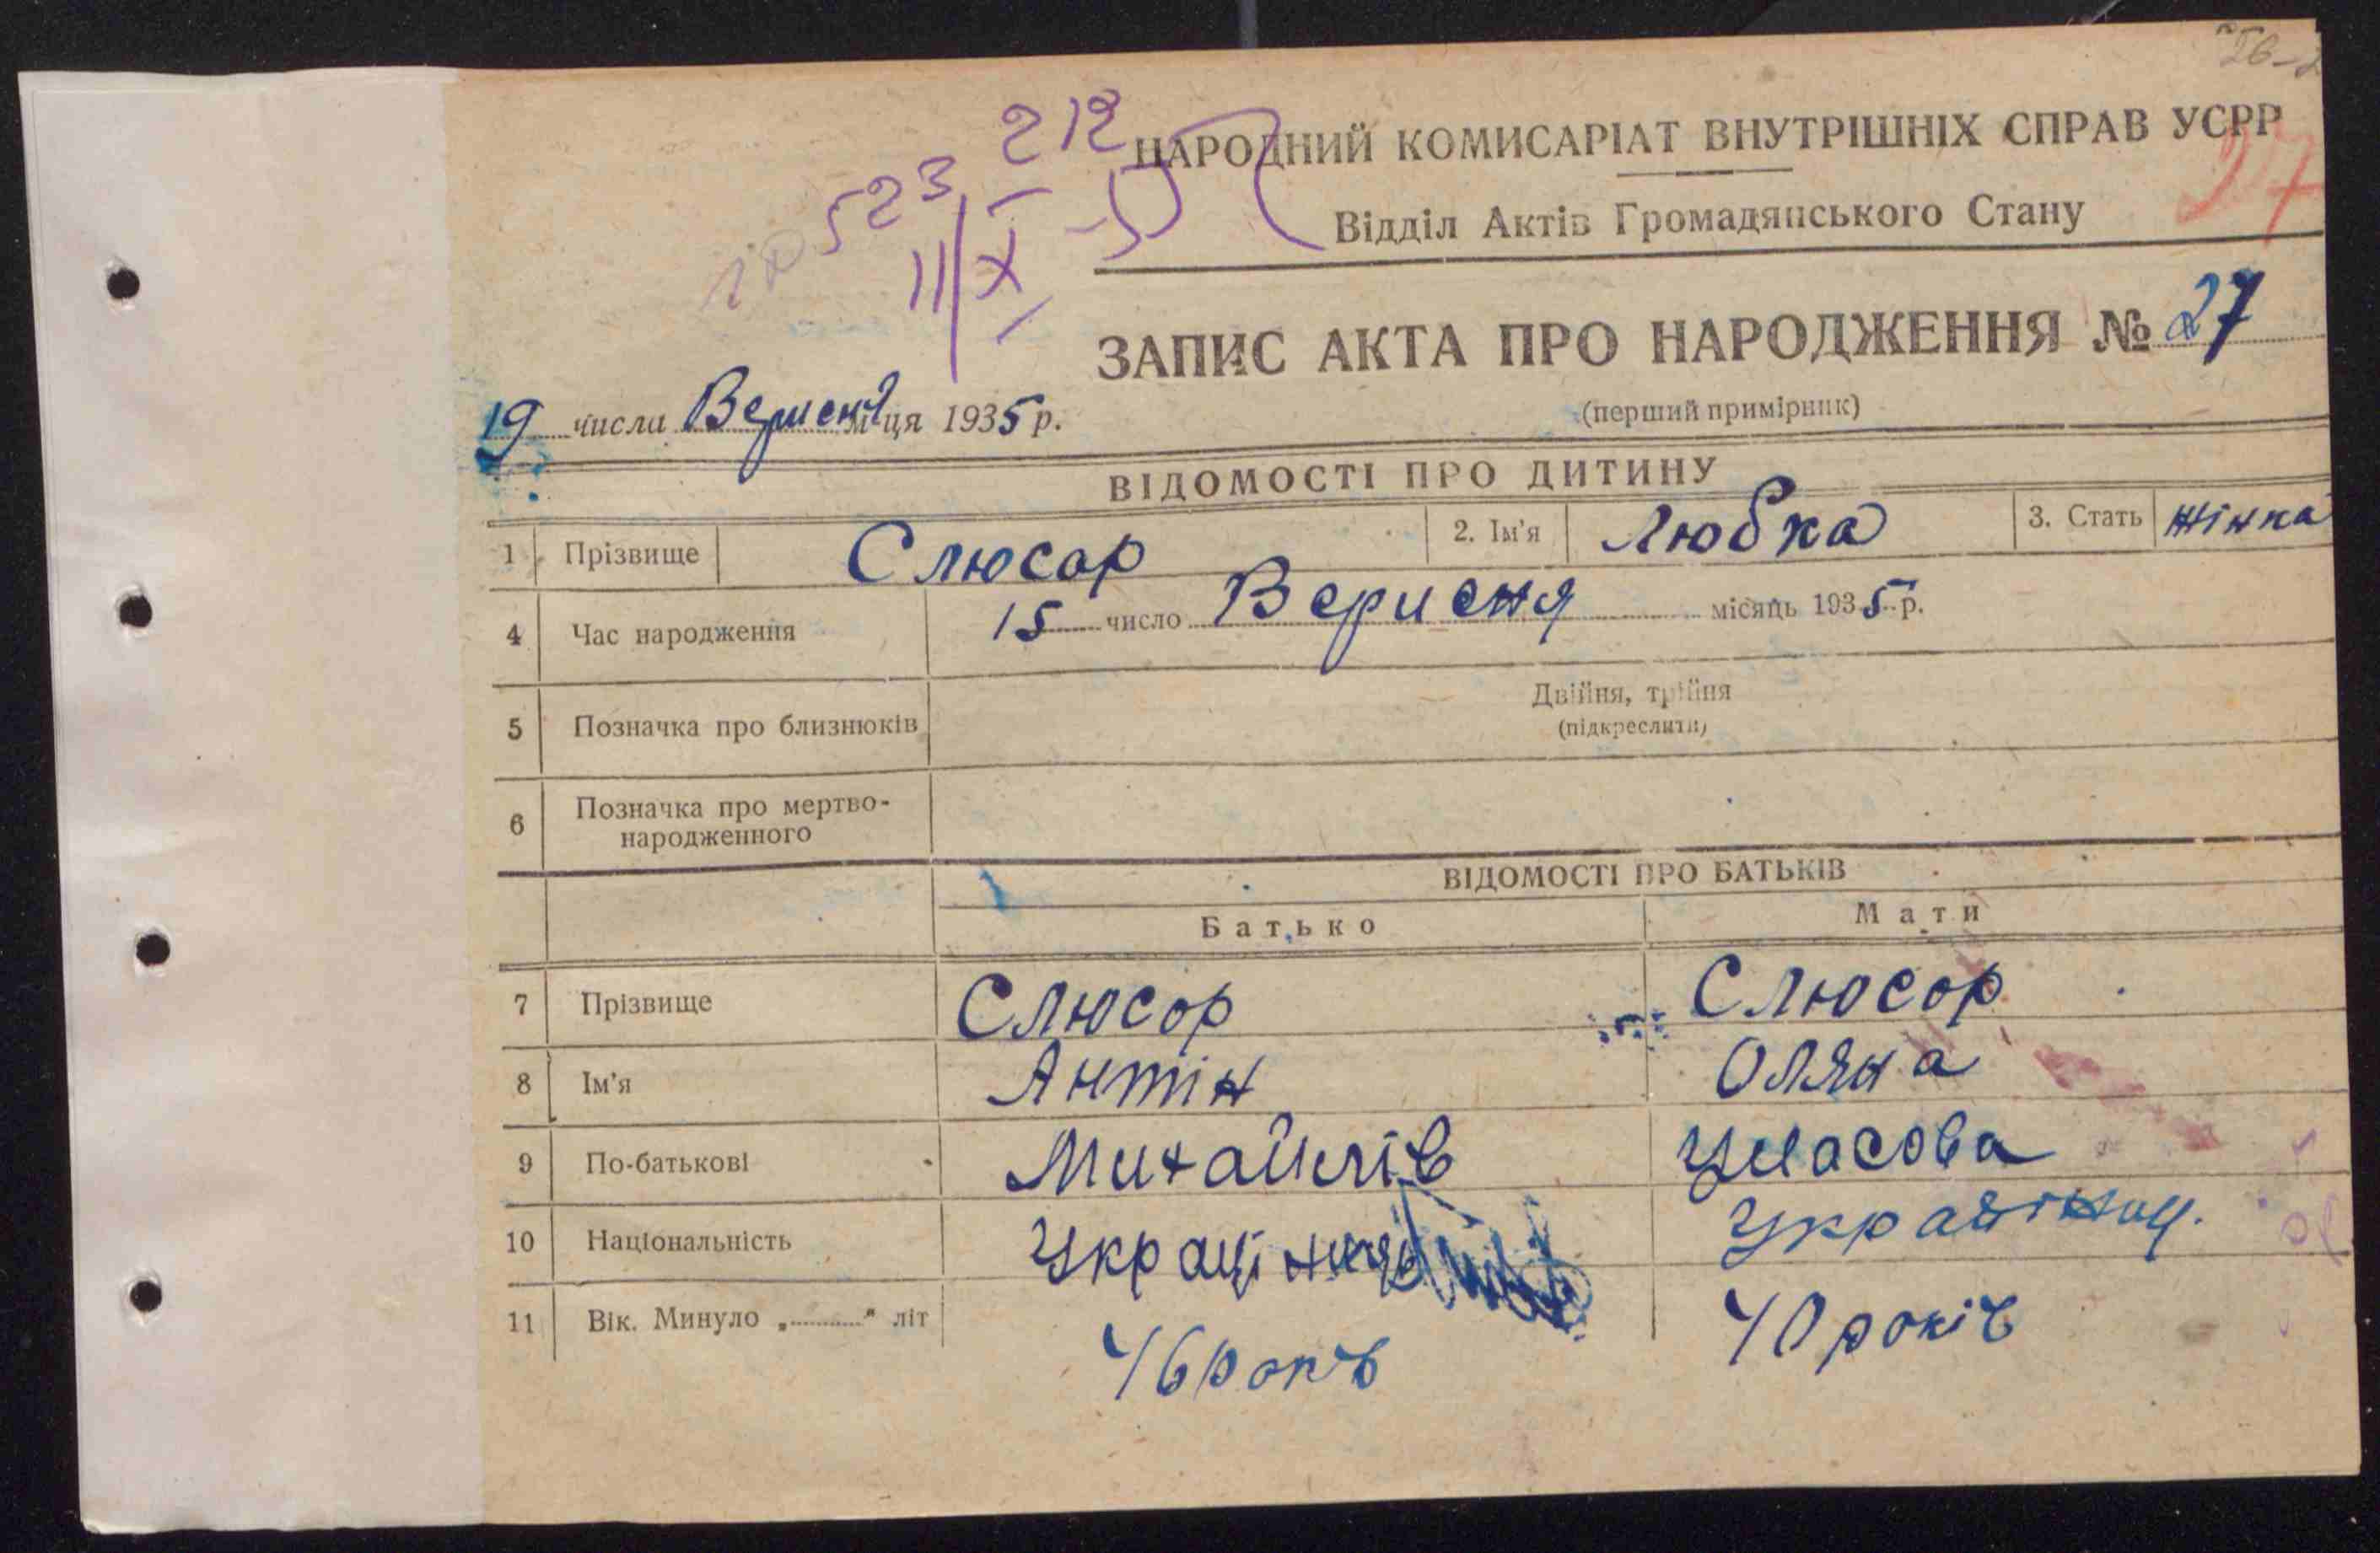 523 212
11/X
27
НАРОДНИЙ КОМИСАРІАТ ВНУТРІШНІХ СПРАВ УСРР
Відділ Актів Громадянського Стану
ЗАПИС АКТА ПРО НАРОДЖЕННЯ № 27
(перший примірник)
19 числа Версня м-ця 1935 р.
ВІДОМОСТІ ПРО ДИТИНУ
1 Прізвище Слюсар 2. Ім'я Любка 3. Стать жінка
4 Час народження 15 число Верисня місяць 1935 р.
5 Позначка про близнюків Двійня, трійня
(підкреслити)
6 Позначка про мертво-
народженного
ВІДОМОСТІ ПРО БАТЬКІВ
Батько Мати
7 Прізвище Слюсор Слюсор
8 Ім'я Антін Оляна
9 По-батькові Михайлів Уласова
10 Національність
11 Вік. Минуло „........" літ 46 років 40 років